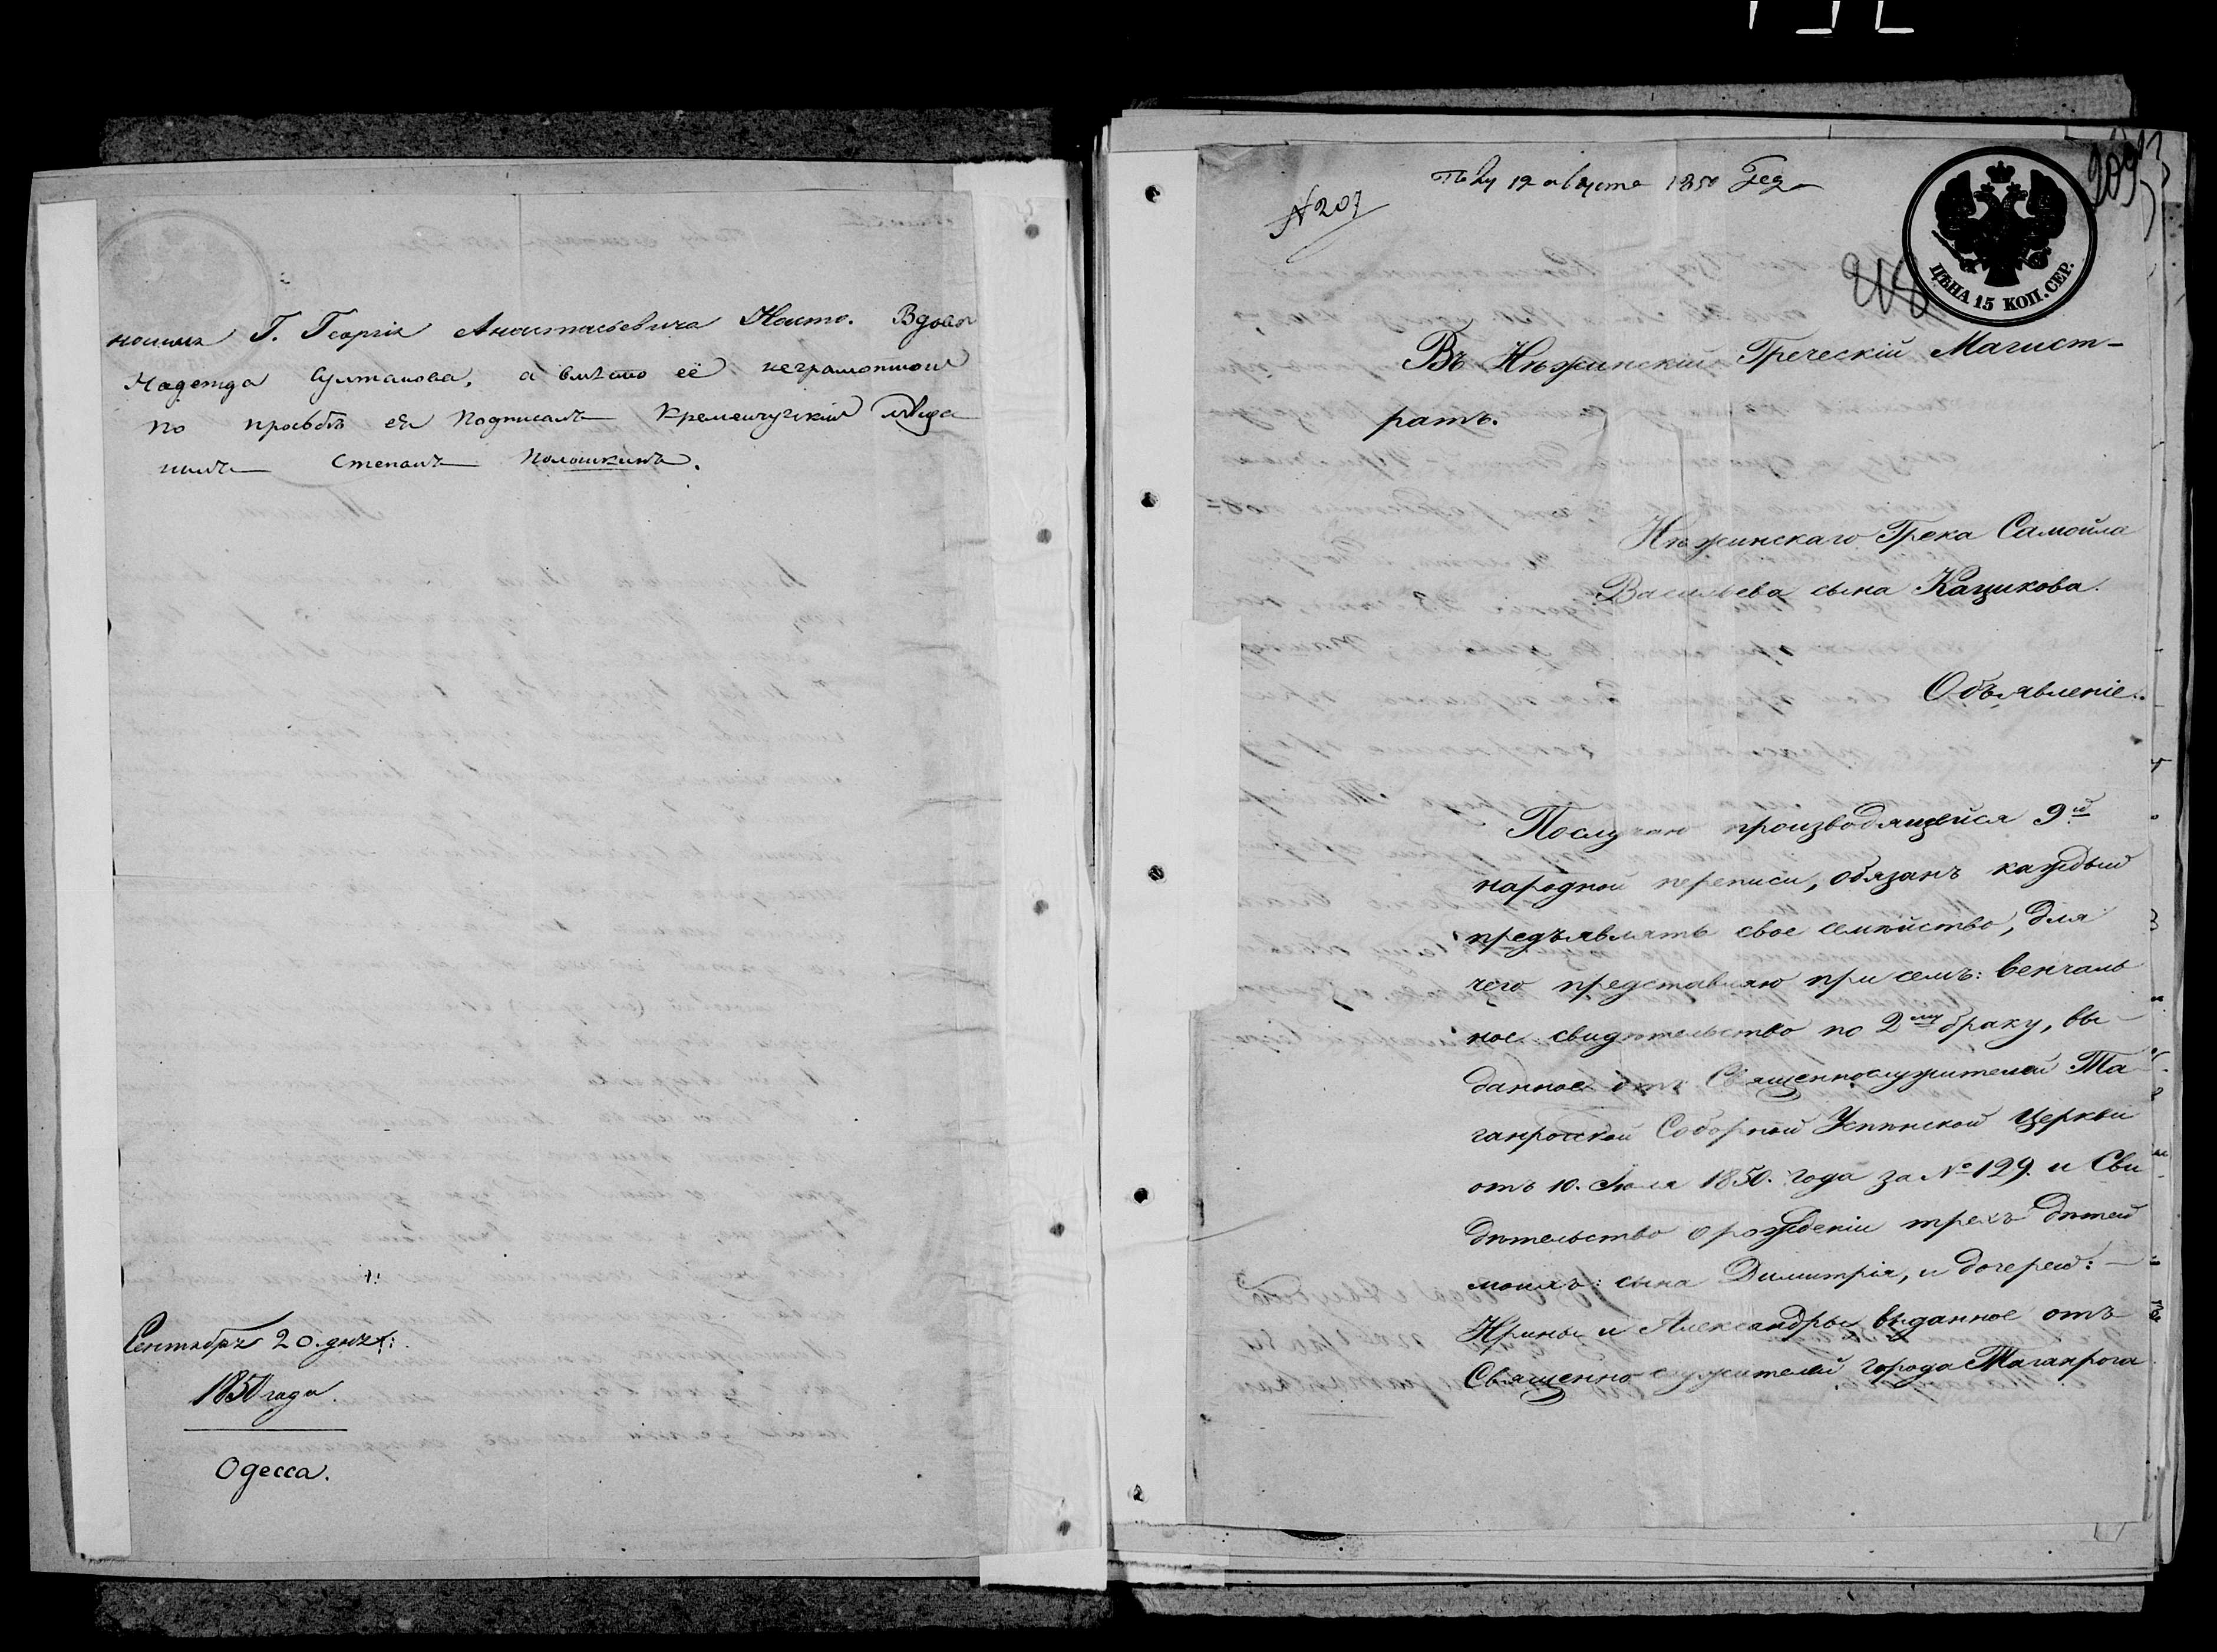 Г. Георгія Анастасьевича Вдова
Надежда Султанова, а вмѣсто её неграмотной
по прозьбѣ ея подписалъ Кременчугскій мѣща
нинъ Степанъ Полошкинъ.
Сентября 20. дня
1850 года.
Одесса.
12 августа 1850 года
№ 207
ЦѢНА 15 КОП. СЕР.
Въ Нѣжинскій Греческій Магист-
ратъ.
Нѣжинскаго Грека Самойла
Васильева сына Кацикова.
Объявленіе.
Послучаю производящейся 9й
народной переписи, обязанъ каждый
предъявлять свое семѣйство, для
чего представляю при семъ: венчаль
ное свидѣтельство по 2му браку, вы-
данное отъ Священнослужителей Та-
ганрогской Соборной Успѣнской Церкви
отъ 10. Іюля 1850. года за № 129. и Сви
дѣтельство о рожденіи трехъ дѣтей
моихъ: сына Димитрія, и дочерей: —
Ирины и Александры выданное отъ
Священно служителей города Таганрога